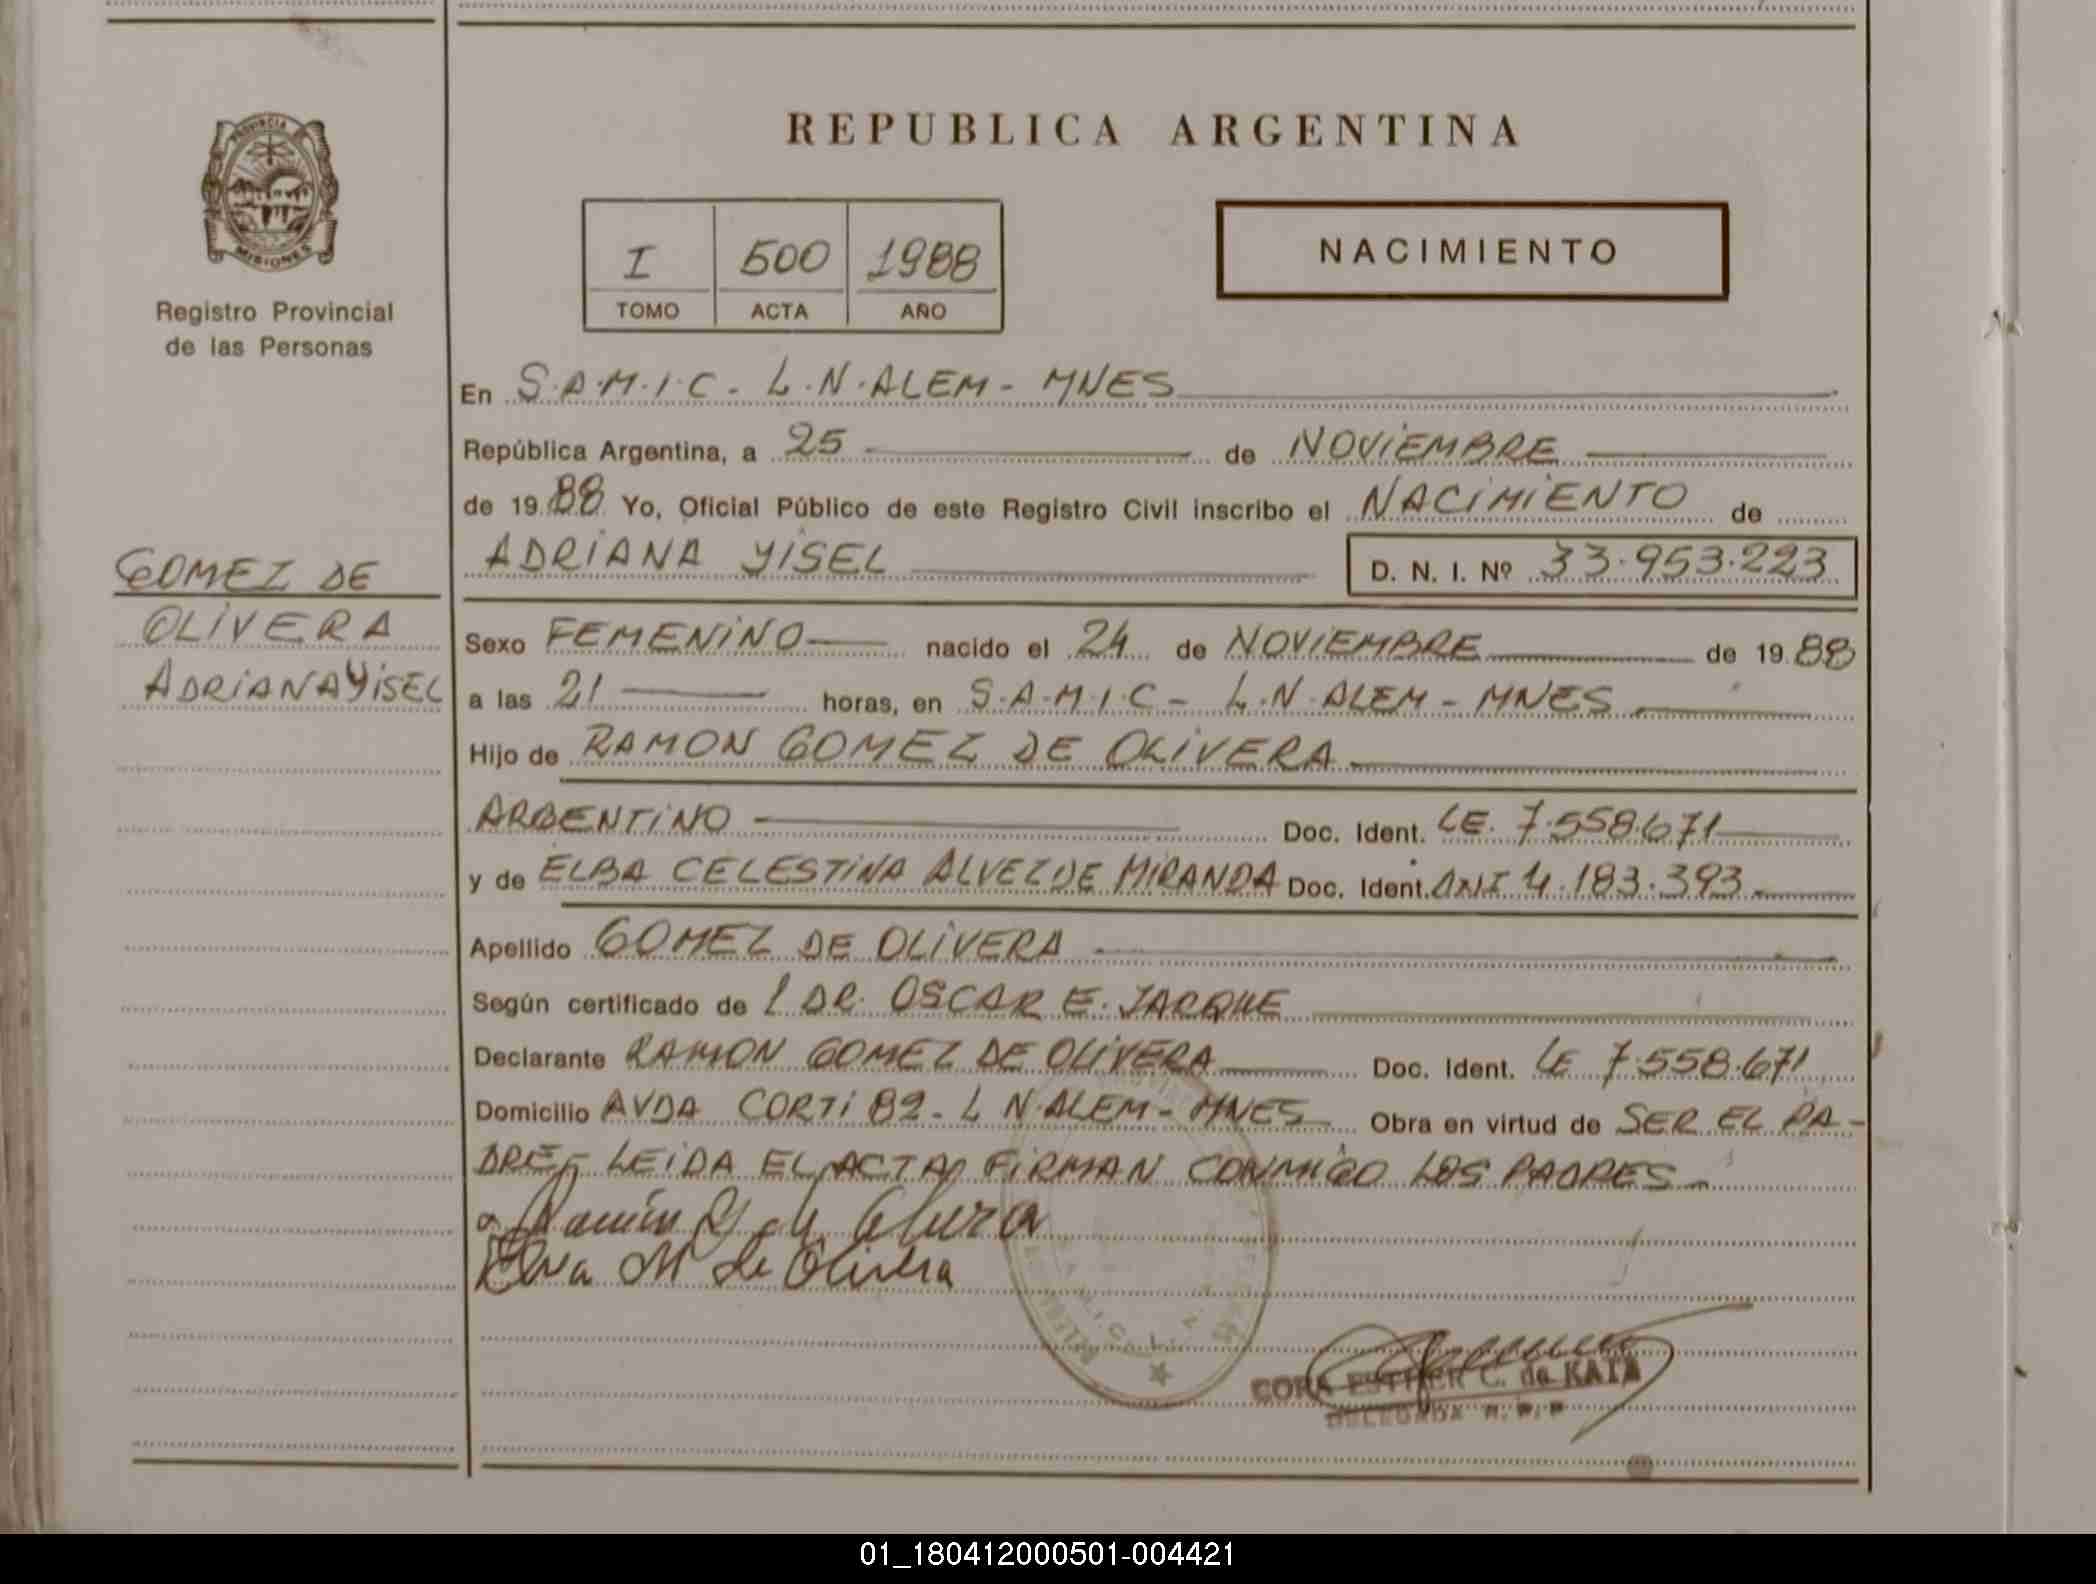 PROVINCIA DE
MISIONES
Registro Provincial
de las Personas
REPUBLICA ARGENTINA
I 500 1988
TOMO ACTA AÑO
NACIMIENTO
En S.A.M.I.C - L.N.ALEM - MNES
República Argentina, a 25 de NOViEMBRE
de 19 88 Yo, Oficial Público de este Registro Civil inscribo el NACiMiENTO de
ADRiANA YiSEL D. N. I. Nº 33.953.223
GOMEZ DE
OLiVERA
ADRiANA YiSEL
Sexo FEMENiNO nacido el 24 de NOViEMBRE de 19 88
a las 21 horas, en S.A.M.I.C - L.N.ALEM - MNES
Hijo de RAMON GOMEZ DE OLiVERA
ARGENTiNO Doc. Ident. LE. 7.558.671
y de ELBA CELESTiNA ALVEZ DE MiRANDA Doc. Ident. DNI 4.183.393
Apellido GOMEZ DE OLiVERA
Según certificado de L DR. OSCAR E. JARQUE
Declarante RAMON GOMEZ DE OLiVERA Doc. Ident. LE 7.558.671
Domicilio AVDA CORTi 82 - L N.ALEM - MNES Obra en virtud de SER EL PA-
DRE, LEiDA EL ACTA, FiRMAN CONMiGO LOS PADRES
Ramón G de Olivera
Elva M de Olivera
CORA ESTHER C. de KATA
DELEGADA R. P. P
01_180412000501-004421